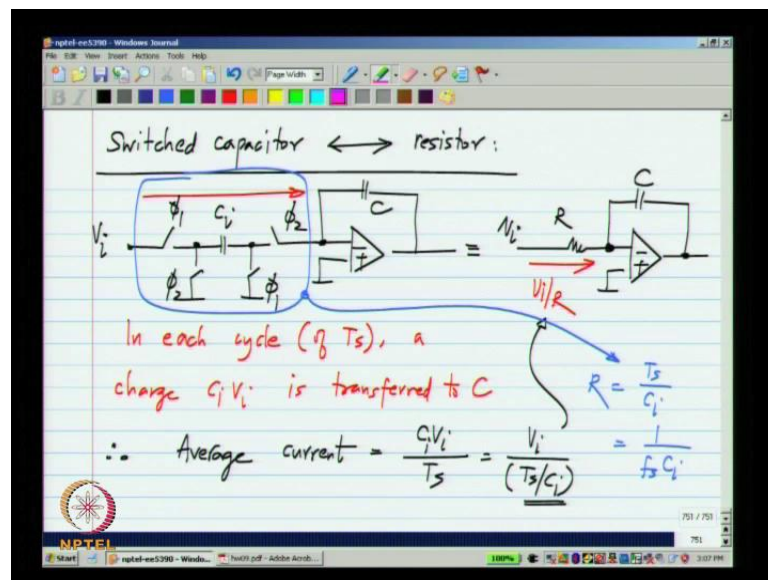 nptel-ee5390 - Windows Journal
File Edit View Insert Actions Tools Help
Page Width
B I
Switched capacitor ↔ resistor:
Vi ϕ1 Ci ϕ2 C = Vi R C
ϕ2 ϕ1 Vi/R
In each cycle (of Ts), a
charge CiVi is transferred to C
R = Ts/Ci
∴ Average current = CiVi/Ts = Vi/(Ts/Ci)
= 1/fsCi
751 / 751
751
NPTEL
Start nptel-ee5390 - Windo... hw09.pdf - Adobe Acrob... 100% 3:07 PM